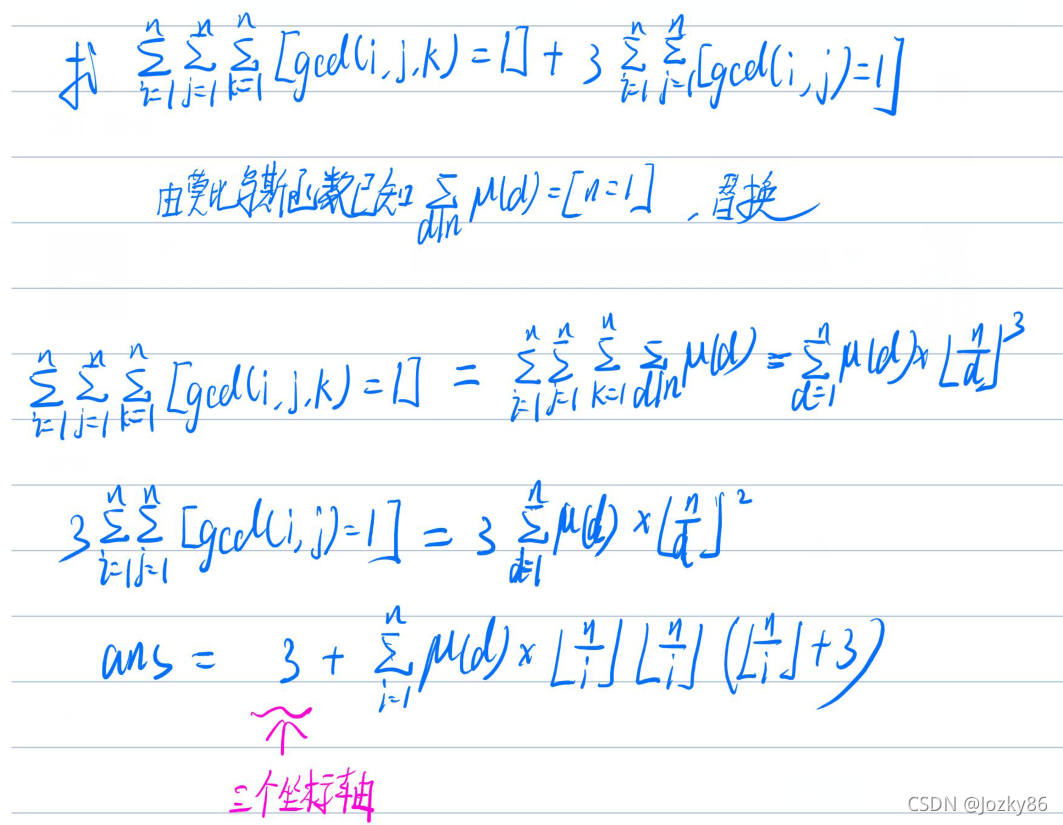 求 $\sum_{i=1}^{n}\sum_{j=1}^{n}\sum_{k=1}^{n}[gcd(i,j,k)=1]+3\sum_{i=1}^{n}\sum_{j=1}^{n}[gcd(i,j)=1]$
由莫比乌斯函数已知 $\sum_{d|n}\mu(d)=[n=1]$ ,替换
$\sum_{i=1}^{n}\sum_{j=1}^{n}\sum_{k=1}^{n}[gcd(i,j,k)=1]=\sum_{i=1}^{n}\sum_{j=1}^{n}\sum_{k=1}^{n}\sum_{d|n}\mu(d)=\sum_{d=1}^{n}\mu(d)\times\lfloor\frac{n}{d}\rfloor^{3}$
$3\sum_{i=1}^{n}\sum_{j=1}^{n}[gcd(i,j)=1]=3\sum_{d=1}^{n}\mu(d)\times\lfloor\frac{n}{d}\rfloor^{2}$
$ans=3+\sum_{i=1}^{n}\mu(d)\times\lfloor\frac{n}{i}\rfloor\lfloor\frac{n}{i}\rfloor(\lfloor\frac{n}{i}\rfloor+3)$
三个坐标轴
CSDN @Jozky86